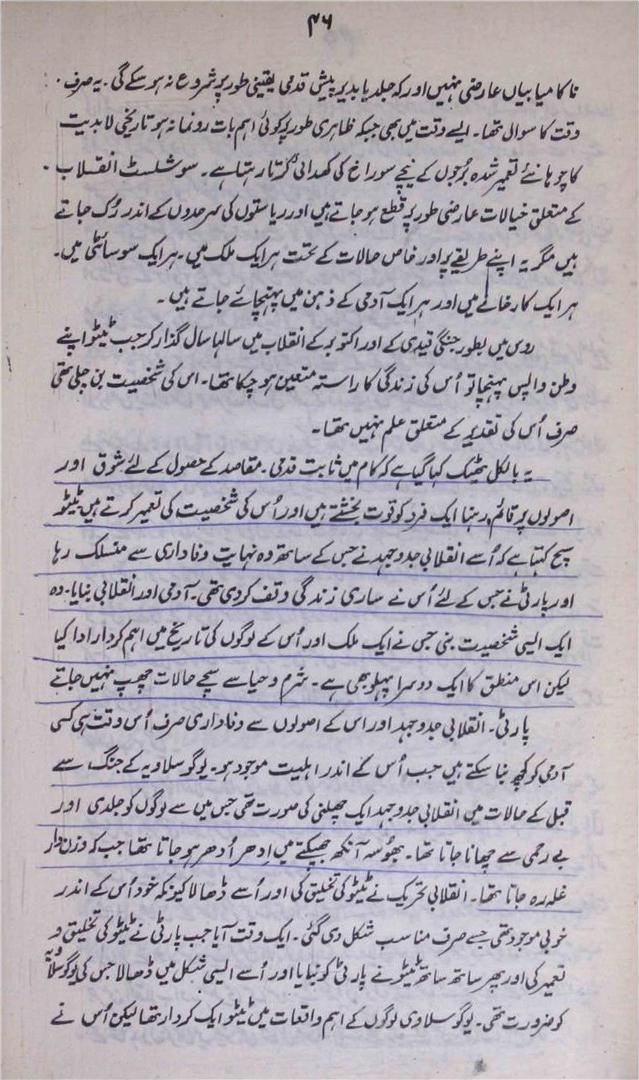 ۴۶
ناکامیابیاں عارضی ہنیں اور کہ جلد یا بدیر پیش قدمی یقینی طور پر شروع نہ ہو سکے گی۔ یہ صرف
وقت کا سوال تھا۔ ایسے وقت میں بھی جبکہ ظاہری طور پر کوئی اہم بات رونما نہ ہو تاریخی لابدیت
کا چوہا نئے تعمیر شدہ بُرجوں کے نیچے سوراخ کی کھدائی کرتا رہتا ہے۔ سوشلسٹ انقلاب
کے متعلق خیالات عارضی طور پر قطع ہو جاتے ہیں اور ریاستوں کی سرحدوں کے اندر رُک جاتے
ہیں مگر یہ اپنے طریقے پر اور خاص حالات کے تحت ہر ایک ملک میں۔ ہر ایک سوسائٹی میں۔
ہر ایک کارخانے میں اور ہر ایک آدمی کے ذہن میں پہنچائے جاتے ہیں۔
روس میں بطور جنگی قیدی کے اور اکتوبر کے انقلاب میں سالہا سال گذار کر جب ٹیٹو اپنے
وطن واپس پہنچا تو اُس کی زندگی کا راستہ متعین ہو چکا تھا۔ اس کی شخصیت بن چلی تھی
صرف اُس کی تقدیر کے متعلق علم نہیں تھا۔
یہ بالکل ٹھیک کہا گیا ہے کہ کام میں ثابت قدمی۔ مقاصد کے حصول کے لئے شوق اور
اصولوں پر قائم رہنا ایک فرد کو قوت بخشتے ہیں اور اُس کی شخصیت کی تعمیر کرتے ہیں ٹیٹو
سچ کہتا ہے کہ اُسے انقلابی جدوجہد نے جس کے ساتھ وہ نہایت وفاداری سے منسلک رہا
اور پارٹی نے جس کے لئے اُس نے ساری زندگی وقف کر دی تھی۔ آدمی اور انقلابی بنایا۔ وہ
ایک ایسی شخصیت بنی جس نے ایک ملک اور اُس کے لوگوں کی تاریخ میں اہم کردار ادا کیا
لیکن اس منطق کا ایک دوسرا پہلو بھی ہے۔ شرم و حیا سے سچے حالات چھپ نہیں جاتے
پارٹی۔ انقلابی جدوجہد اور اس کے اصولوں سے وفاداری صرف اُس وقت ہی کسی
آدمی کو کچھ بنا سکتے ہیں جب اُس کے اندر اہلیت موجود ہو۔ یوگوسلاویہ کے جنگ سے
قبل کے حالات میں انقلابی جدوجہد ایک چھلنی کی صورت تھی جس میں سے لوگوں کو جلدی اور
بے رحمی سے چھانا جاتا تھا۔ بھوسہ آنکھ جھپکتے میں اِدھر اُدھر ہو جاتا تھا جب کہ وزن دار
غلہ رہ جاتا تھا۔ انقلابی تحریک نے ٹیٹو کی تخلیق کی اور اُسے ڈھالا کیونکہ خود اُس کے اندر
خوبی موجود تھی جسے صرف مناسب شکل دی گئی۔ ایک وقت آیا جب پارٹی نے ٹیٹو کی تخلیق و
تعمیر کی اور پھر ساتھ ساتھ ٹیٹو نے پارٹی کو بنایا اور اُسے ایسی شکل میں ڈھالا جس کی یوگوسلاویہ
کو ضرورت تھی۔ یوگوسلاوی لوگوں کے اہم واقعات میں ٹیٹو ایک کردار تھا لیکن اُس نے